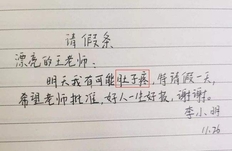 请假条
漂亮的王老师：
明天我有可能肚子疼，特请假一天，
希望老师批准，好人一生好报，谢谢。
李小明
11.26